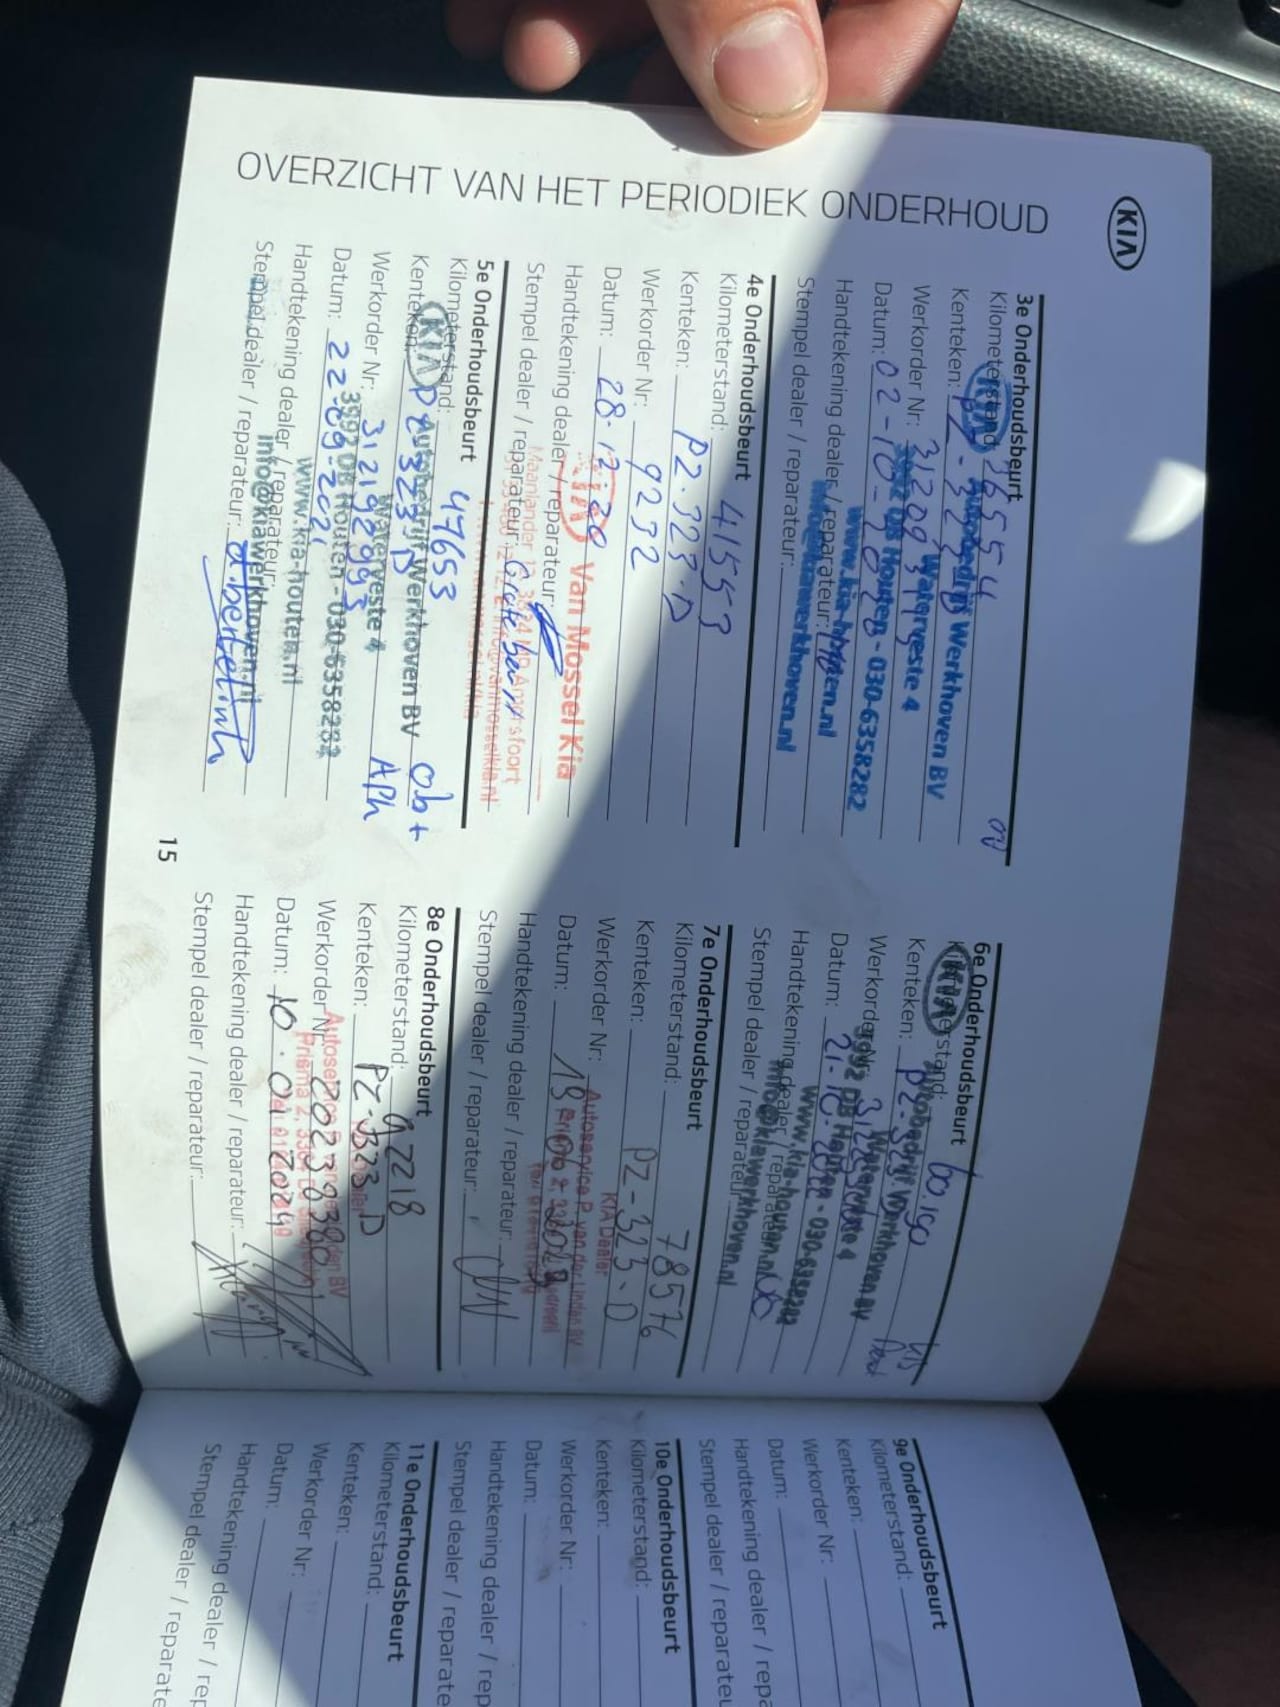 KIA
OVERZICHT VAN HET PERIODIEK ONDERHOUD
3e Onderhoudsbeurt
Kilometerstand: 36554
Kenteken: PZ-323-D
Werkorder Nr:
Datum: 02-10-2020
Handtekening dealer / reparateur:
Stempel dealer / reparateur:
KIA Autobedrijf Werkhoven BV
Waterveste 4
3992 DB Houten - 030-6358282
www.kia-houten.nl
info@kiawerkhoven.nl
4e Onderhoudsbeurt
Kilometerstand: 41553
Kenteken: PZ-323-D
Werkorder Nr: 9232
Datum: 28-12-20
Handtekening dealer / reparateur:
Stempel dealer / reparateur: Grote beurt
KIA Van Mossel Kia
Maanlander 12, 3824 MP Amersfoort
5e Onderhoudsbeurt
Kilometerstand: 47653
Kenteken: PZ-323-D
Werkorder Nr: 31219293
Datum: 22-09-2021
Handtekening dealer / reparateur:
Stempel dealer / reparateur:
KIA Autobedrijf Werkhoven BV
Waterveste 4
3992 DB Houten - 030-6358282
www.kia-houten.nl
info@kiawerkhoven.nl
ob+
APK
15
6e Onderhoudsbeurt
Kilometerstand:
Kenteken: PZ-323-D
Werkorder Nr:
Datum: 21-10-2022
Handtekening dealer / reparateur:
Stempel dealer / reparateur:
KIA Autobedrijf Werkhoven BV
Waterveste 4
3992 DB Houten - 030-6358282
www.kia-houten.nl
info@kiawerkhoven.nl
7e Onderhoudsbeurt
Kilometerstand: 78576
Kenteken: PZ-323-D
Werkorder Nr:
Datum:
Handtekening dealer / reparateur:
Stempel dealer / reparateur:
Autoservice P. van der Linden BV
KIA Dealer
8e Onderhoudsbeurt
Kilometerstand: 92218
Kenteken: PZ-323-D
Werkorder Nr:
Datum: 10-01-2024
Handtekening dealer / reparateur:
Stempel dealer / reparateur:
9e Onderhoudsbeurt
Kilometerstand:
Kenteken:
Werkorder Nr:
Datum:
Handtekening dealer / repa
Stempel dealer / reparateu
10e Onderhoudsbeurt
Kilometerstand:
Kenteken:
Werkorder Nr:
Datum:
Handtekening dealer / rep
Stempel dealer / reparate
11e Onderhoudsbeurt
Kilometerstand:
Kenteken:
Werkorder Nr:
Datum:
Handtekening dealer / re
Stempel dealer / reparate